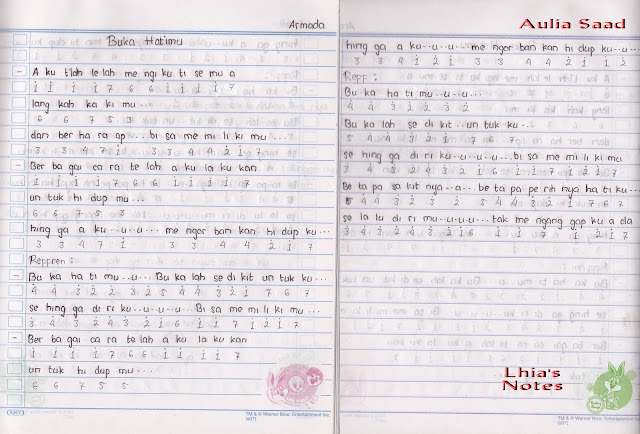 Armada
Buka Hatimu
- A ku t'lah le lah me ngi ku ti se mu a
i i i i 7 6 6 i i i i 7
lang kah ka ki mu ...
6 6 7 5 3
dan ber ha ra ap ... bi sa me mi li ki mu ...
3 3 4 7 i 3 3 4 4 2 i 7
- Ber ba gai ca ra te lah a ku la ku kan
i i i i 7 6 6 i i i i 7
un tuk hi dup mu ...
6 6 7 5 3
hing ga a ku ..u..u ... me ngor ban kan hi dup ku ...
3 3 4 7 i 3 3 4 4 2 i 7
Reppren :
- Bu ka ha ti mu ..u ... Bu ka lah se di kit un tuk ku ...
4 4 3 2 2 3 2 5 4 4 3 2 i 7 6 7
se hing ga di ri ku ..u..u..u ... Bi sa me mi li ki mu ...
3 4 3 2 4 3 2 i 6 i i 7 i 2 i 7
- Ber ba gai ca ra te lah a ku la ku kan
i i i i 7 6 6 i i i i 7
un tuk hi dup mu ...
6 6 7 5 5
KKY
TM & © Warner Bros. Entertainment Inc.
Aulia Saad
hing ga a ku ..u..u ... me ngor ban kan hi dup ku ..u ...
3 3 4 i 2 i 3 3 4 4 2 i i 2
Repp :
Bu ka ha ti mu ..u ...
4 4 3 2 2 3 2
Bu ka lah se di kit .. un tuk ku ...
5 4 4 3 2 i 7 6 7
se hing ga di ri ku ..u..u..u ... bi sa me mi li ki mu
3 4 3 2 4 3 2 i 6 i i 7 i 2 i 7
Be ta pa sa kit nya ..a ... be ta pa pe rih nya ha ti ku ...
5 4 4 3 2 3 2 5 4 4 3 2 i 7 6 7
se la lu di ri mu ..u..u..u ... tak me ngang gap ku a da
3 4 3 2 4 3 2 i 6 i i 7 i 2 i 7
Lhia's
Notes
TM & © Warner Bros. Entertainment Inc.